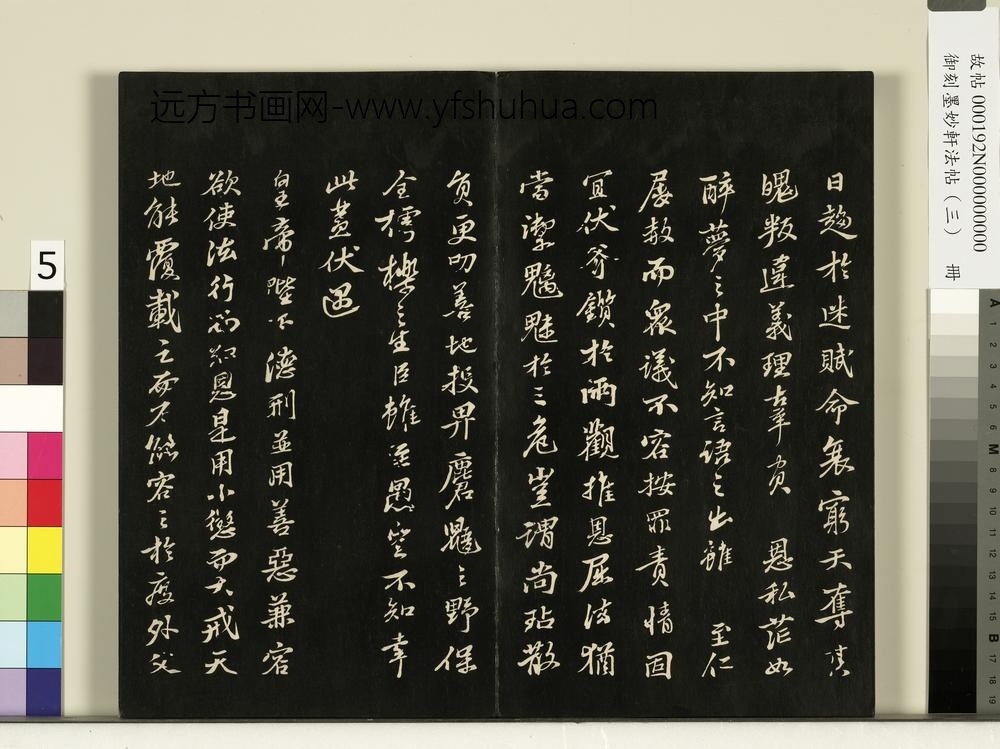 故帖 000192N000000000
御刻墨妙軒法帖(三) 冊
远方书画网-www.yfshuhua.com
日趨於迷賦命衰窮天奪其
魄叛違義理辜負恩私茫如
醉夢之中不知言語之出雖至仁
屢赦而衆議不容按罪責情固
宜伏斧鑕於兩觀推恩屈法猶
當禦魑魅於三危豈謂尚玷散
負更叨善地投畀麏鼯之野保
全樗櫟之生臣雖至愚豈不知幸
此蓋伏遇
皇帝陛下德刑並用善惡兼容
欲使法行而知恩是用小懲而大戒天
地能覆載之而不能容之於度外父
5